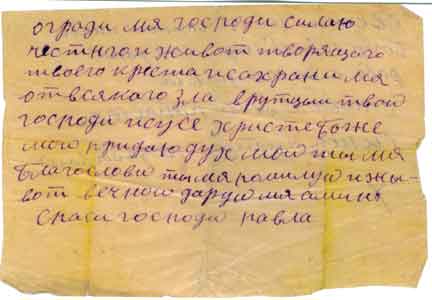 огради мя господи силаю
честнго и живот творящаго
твоего креста и сахрани мя
от всякаго зла врутцыи твои
господи исусе христе боже
мои придаю дух мои ты мя
благослови ты мя помилуй и жы-
вот вечнои даруй мя аминь
спаси господи павла